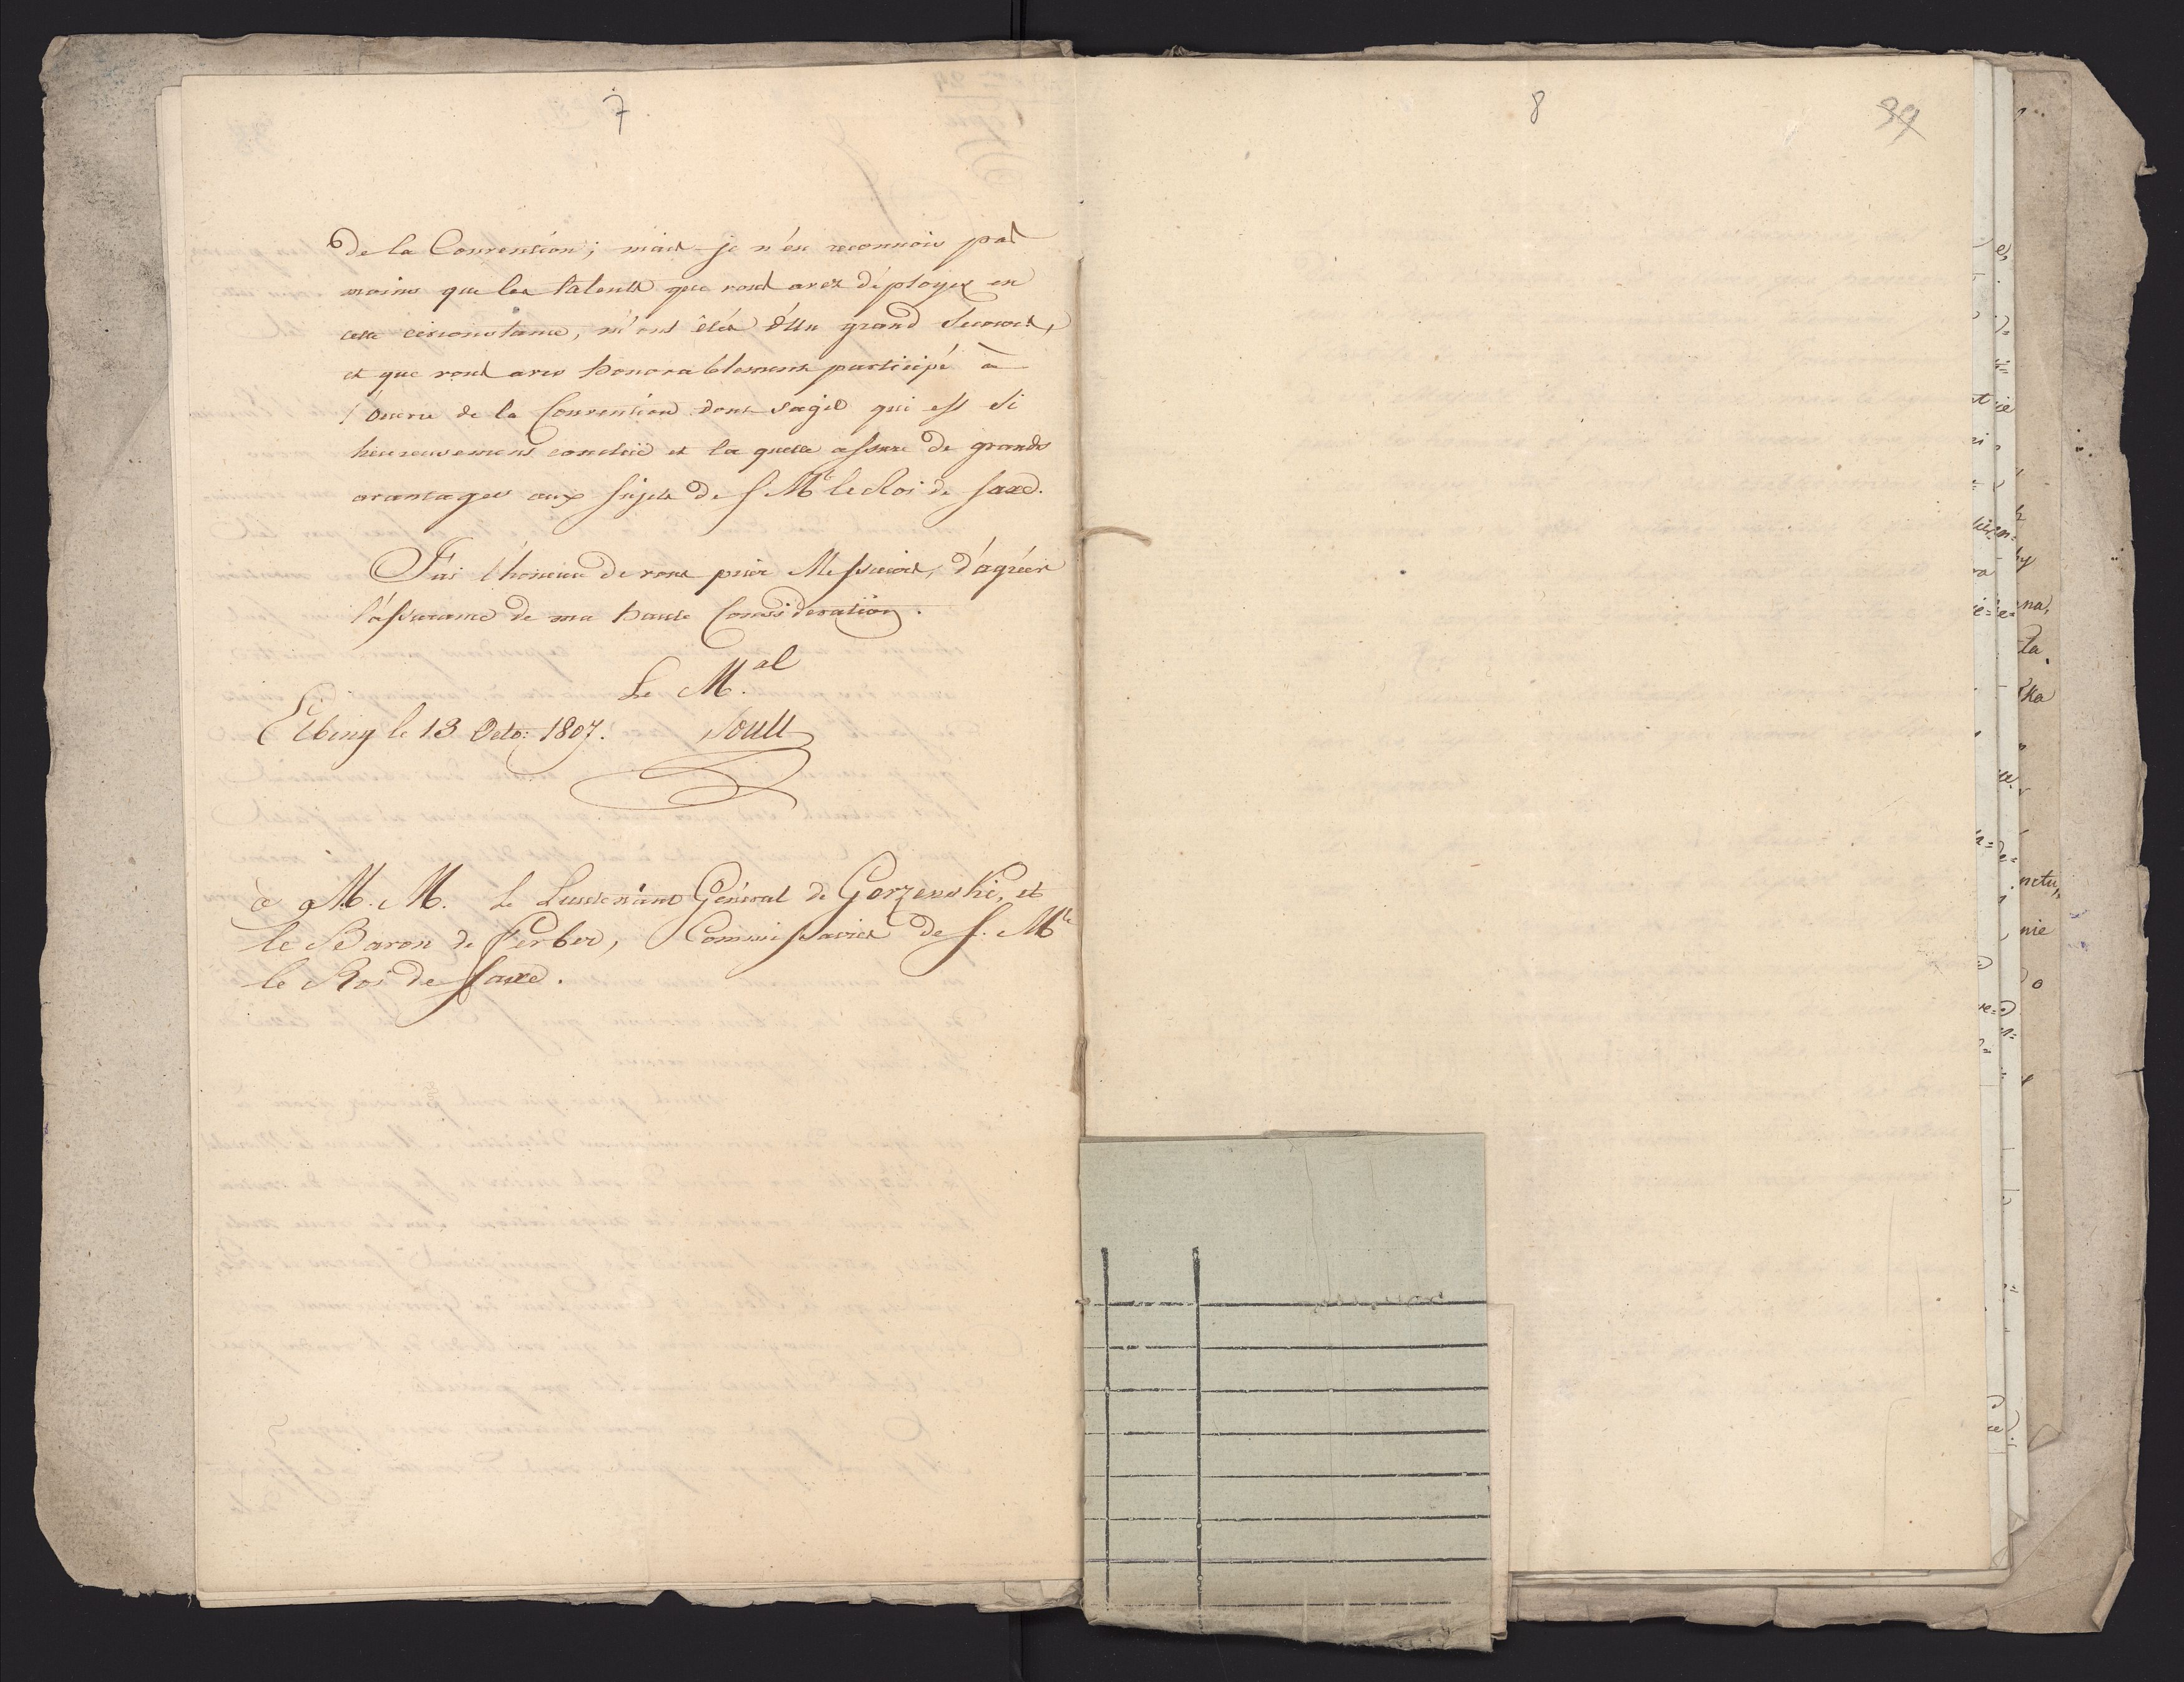 7
de la Convention; mais je n'en reconnois pas
moins que les talents que vous avez déployez en
cette circonstance, m'ont étés d'Un grand Secours,
et que vous avez honorablement participé à
l'Ouvre de la Convention dont s'agit qui est si
heureusement conclüe et la quelle assure de grands
avantages aux Sujets de S. Mté le Roi de Saxe.
J'ai l'honneur de vous prier Messieurs, d'agréer
l'assurance de ma haute Consideration.
Le M.al
Elbing le 13 Octo: 1807. Soult
à M. M. le Lieutenant Général de Gorzenski, et
le Baron de Ferber, Commissaires de S. Mté
le Roi de Saxe.
8
39